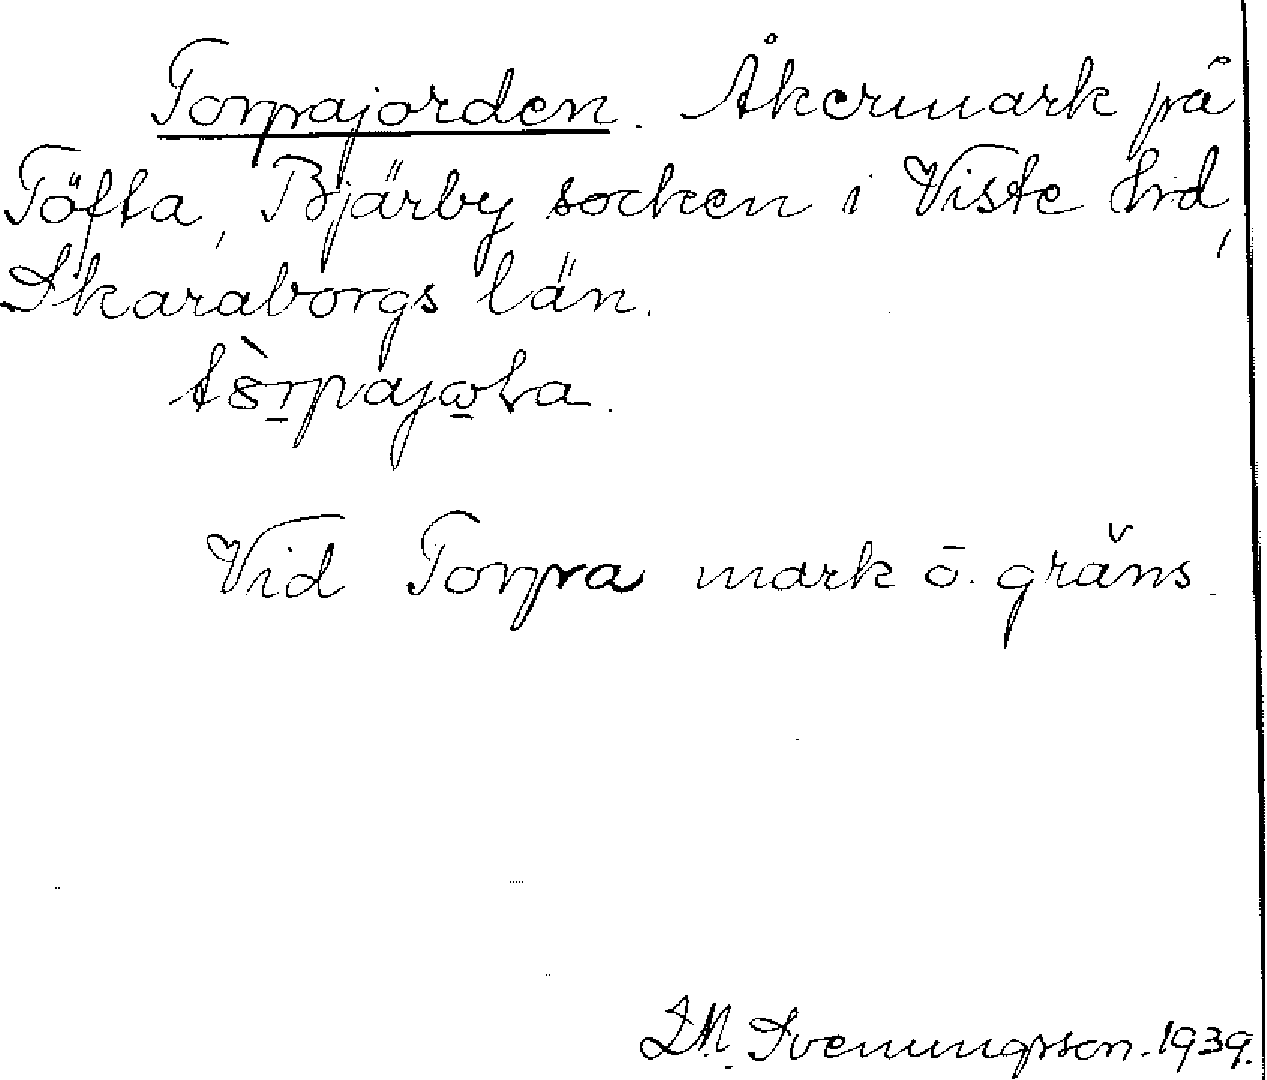 Torpajorden. Åkermark på
Töfta, Bjärby socken i Viste hrd,
Skaraborgs län.
Vid Torpa mark ö. gräns.
J.M. Svenungsson. 1939.